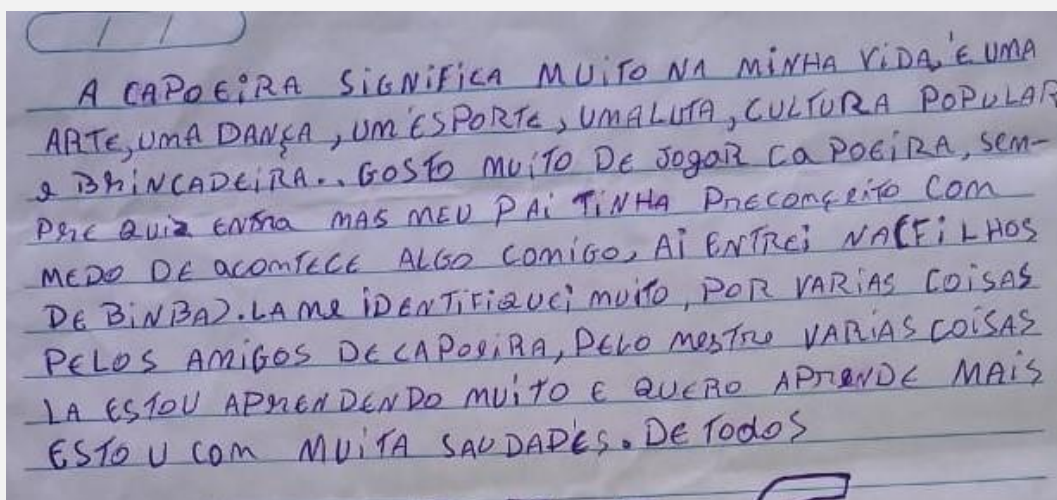 A CAPOEIRA SIGNIFICA MUITO NA MINHA VIDA, É UMA
ARTE, UMA DANÇA, UM ESPORTE, UMA LUTA, CULTURA POPULAR
e BRINCADEIRA.. GOSTO MUITO DE JOGAR CAPOEIRA, SEM-
PRE QUIZ ENTRA MAS MEU PAI TINHA PRECOMÇEITO COM
MEDO DE ACOMTECE ALGO COMIGO, AÍ ENTREI NA (FILHOS
DE BINBA). LA ME IDENTIFIQUEI MUITO, POR VARIAS COISAS
PELOS AMIGOS DE CAPOEIRA, PELO MESTRE VARIAS COISAS
LA ESTOU APRENDENDO MUITO E QUERO APRENDE MAIS
ESTOU COM MUITA SAUDADES. DE TODOS